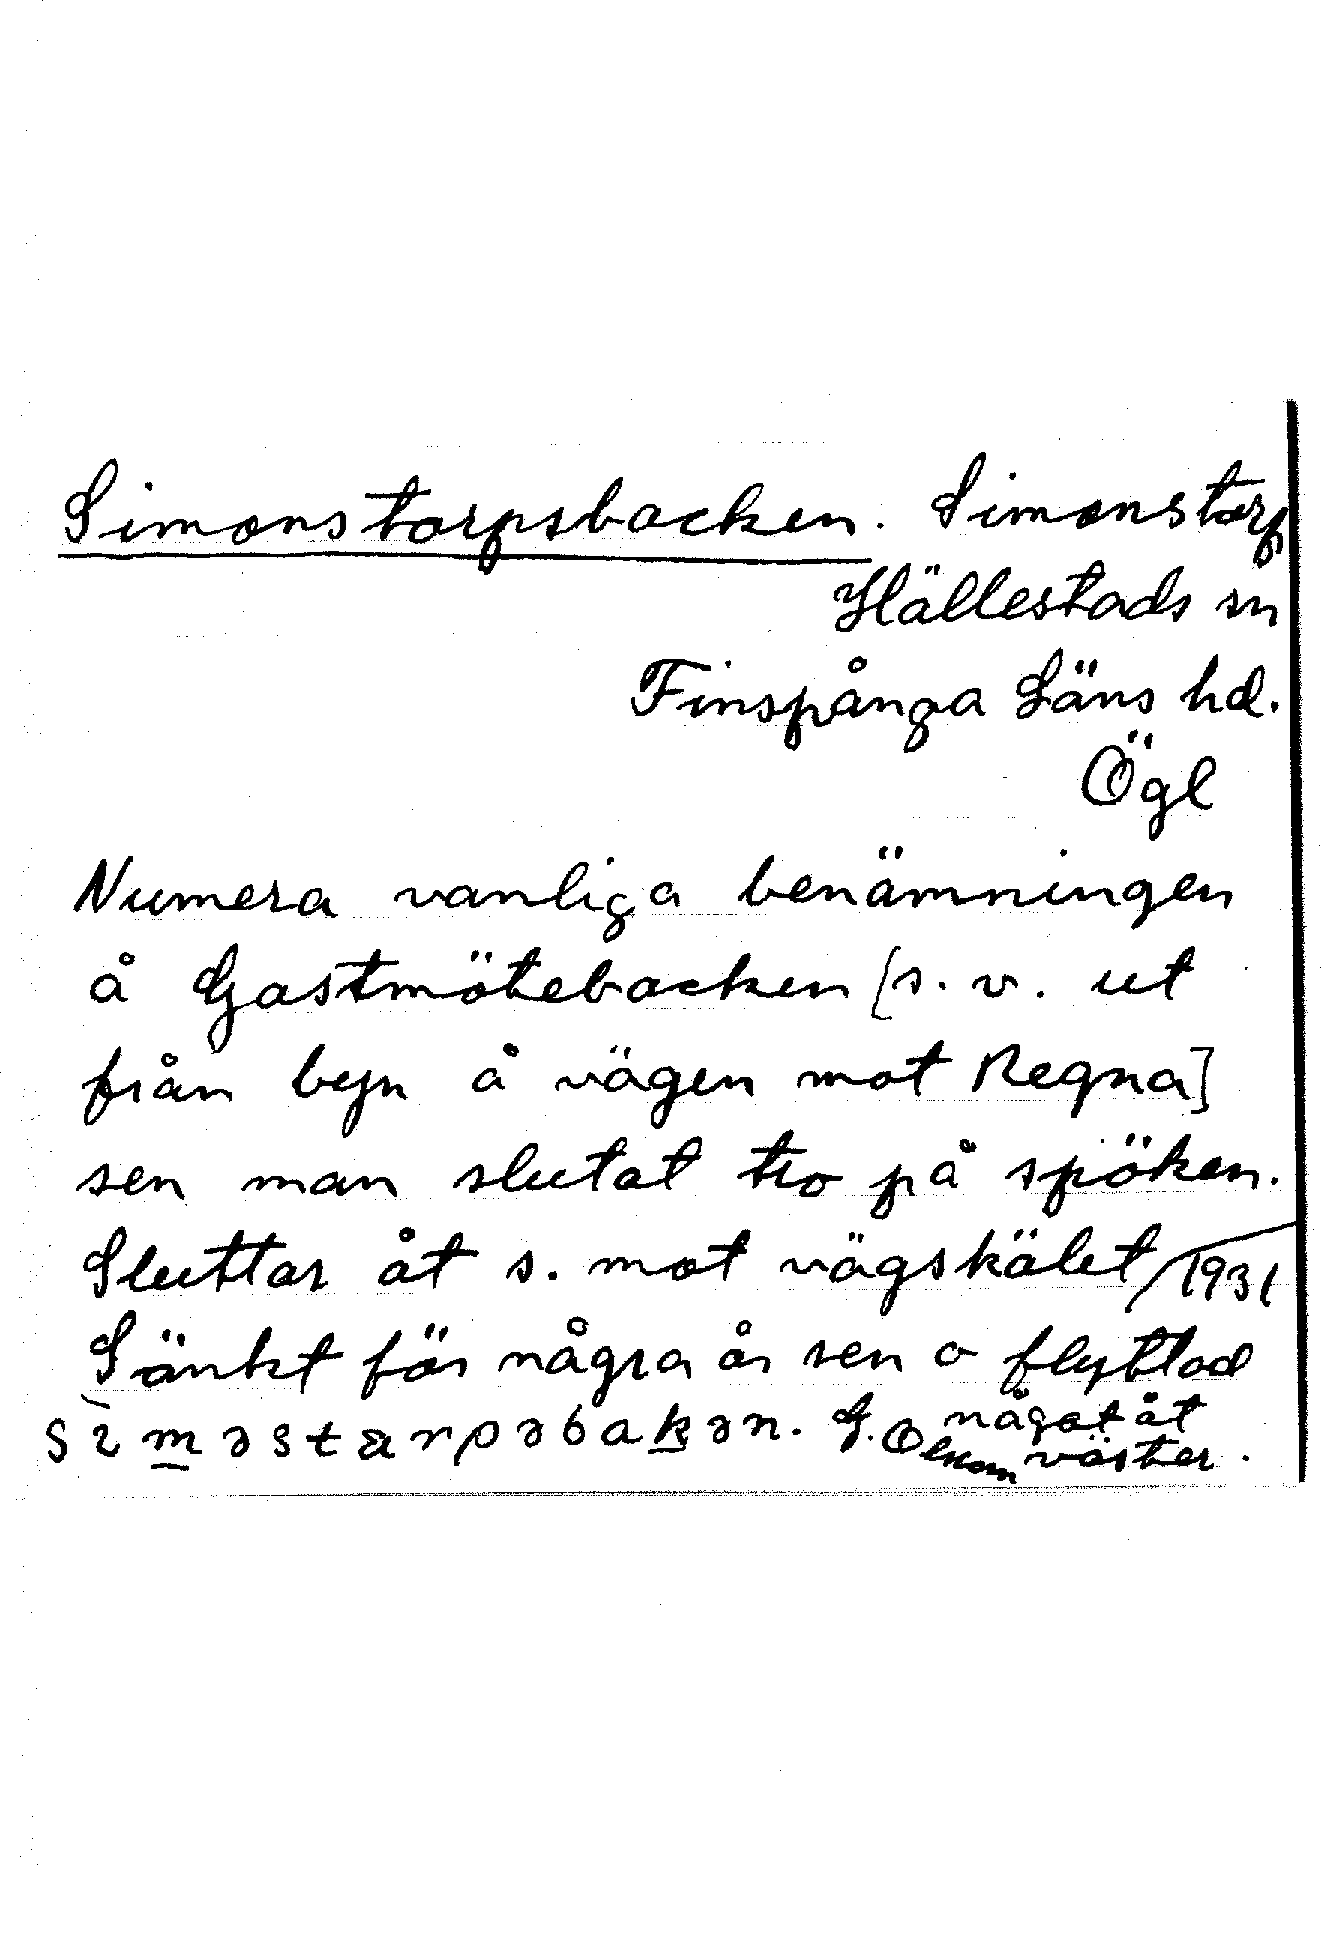 Simonstorpsbacken. Simonstorp
Hällestads sn
Finspånga Läns hd.
Ögl
Numera vanliga benämningen
å Gastmötebacken [s. v. ut
från byn å vägen mot Regna]
sen man slutat tro på spöken.
Sluttar åt s. mot vägskälet / 1931
Sänkt för några år sen o flyttad
något åt
väster.